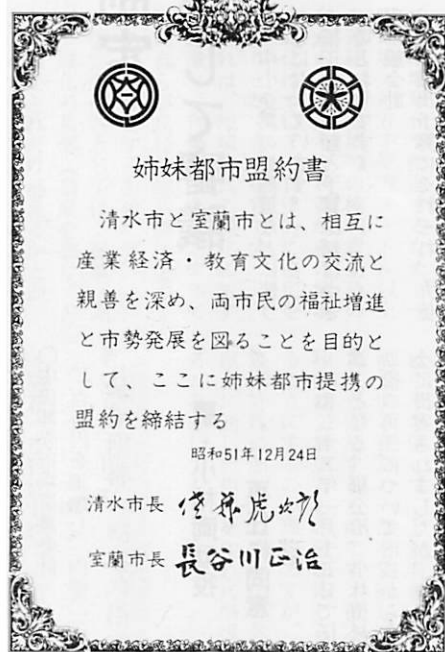 姉妹都市盟約書
清水市と室蘭市とは、相互に
産業経済・教育文化の交流と
親善を深め、両市民の福祉増進
と市勢発展を図ることを目的と
して、ここに姉妹都市提携の
盟約を締結する
昭和51年12月24日
清水市長 佐藤虎次郎
室蘭市長 長谷川正治